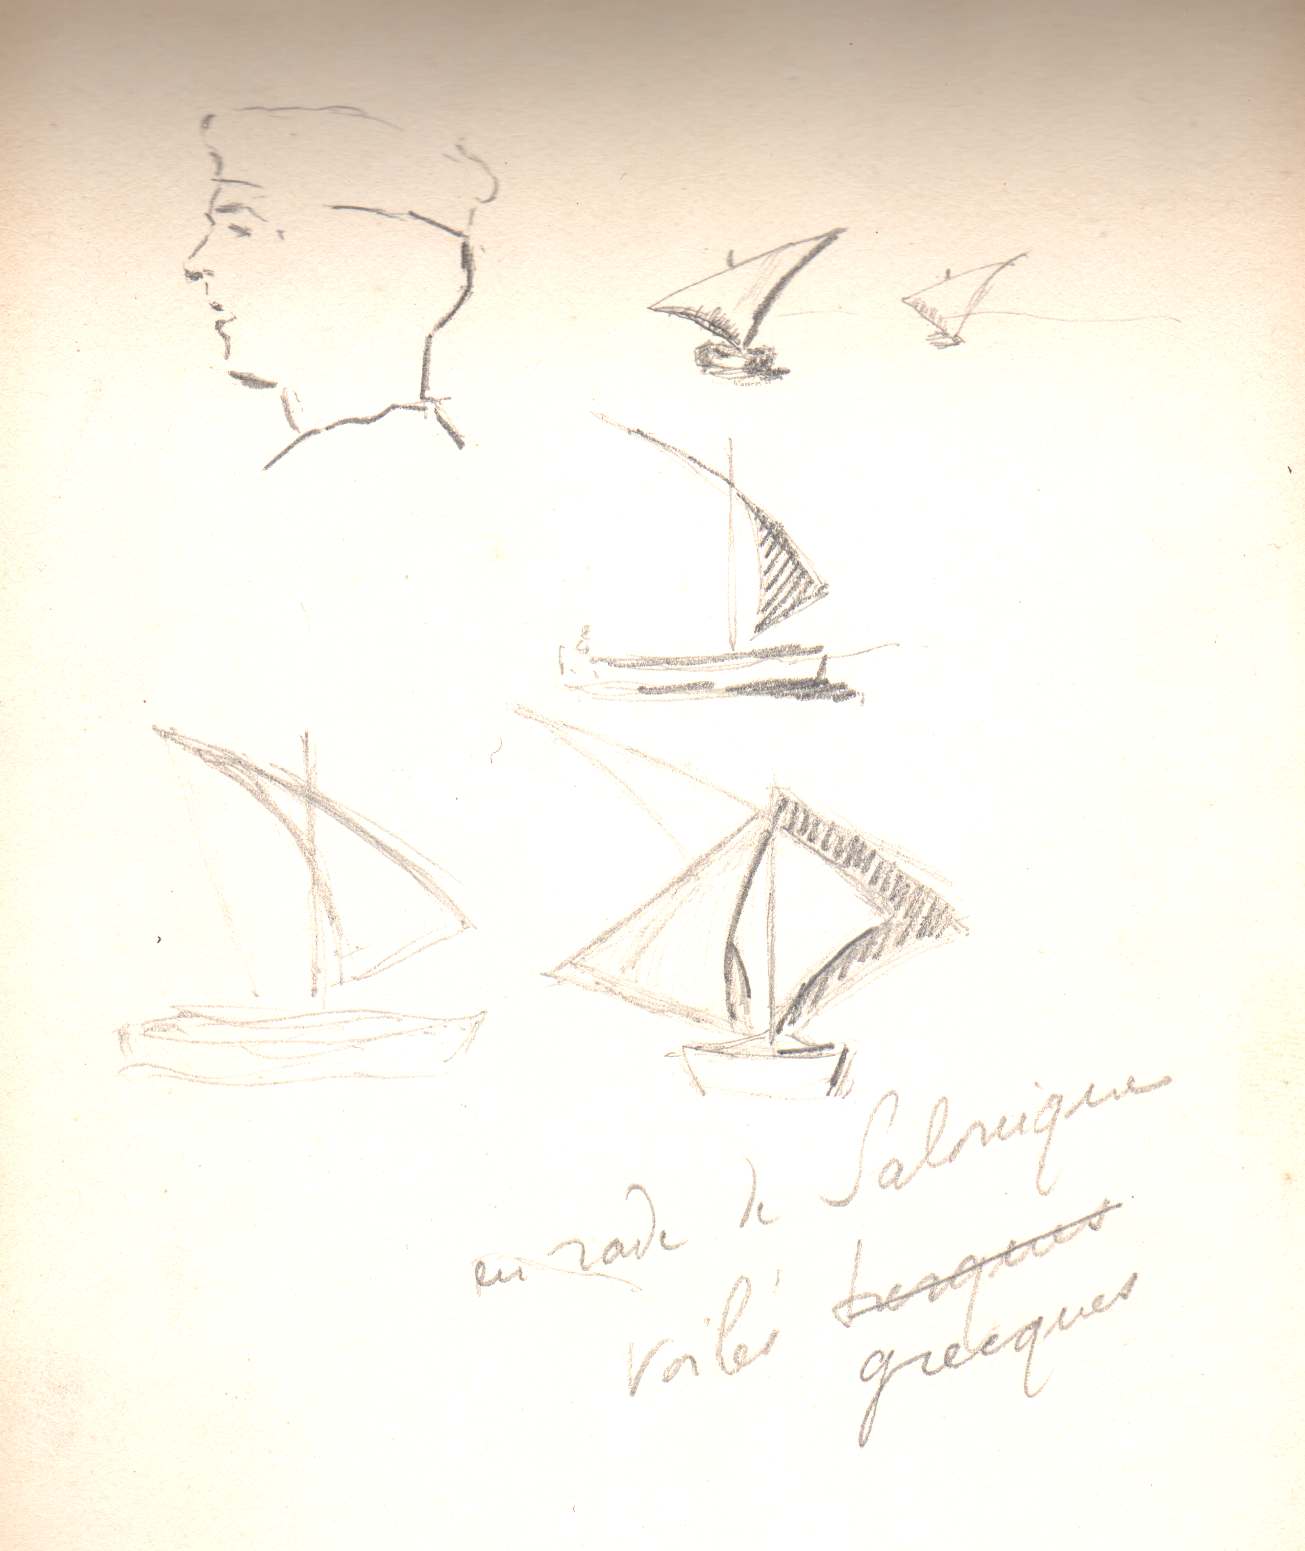 en rade de Salonique
voiles turques
grecques